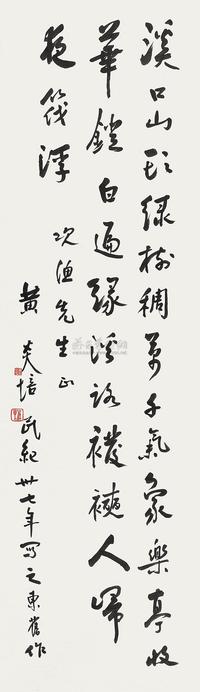 溪口山頭綠樹稠萬千氣象樂亭收
華鐙白遍緣溪路襏襫人歸
夜筏浮
次漁先生正
黄炎培
民紀卅七年寫之東舊作